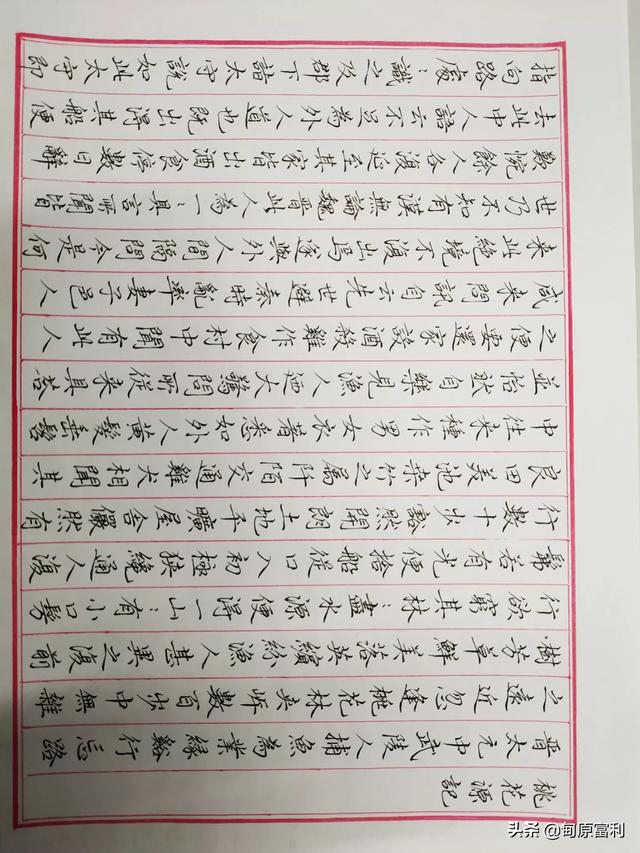 桃花源記
晉太元中武陵人捕魚為業緣谿行忘路
之遠近忽逢桃花林夾岸數百步中無雜
樹芳草鮮美落英繽紛漁人甚異之復前
行欲窮其林:盡水源便得一山:有小口髣
髴若有光便捨船從口入初極狹纔通人復
行數十步豁然開朗土地平曠屋舍儼然有
良田美池桑竹之屬阡陌交通雞犬相聞其
中往来種作男女衣著悉如外人黃髮垂髫
並怡然自樂見漁人迺大驚問所從来具答
之便要還家設酒殺雞作食村中聞有此人
咸来問訊自云先世避秦時亂率妻子邑人
来此絕境不復出焉遂與外人間隔問今是何
世乃不知有漢無論魏晉此人為一:具言所聞皆
歎惋餘人各復延至其家皆出酒食停數日辭
去此中人語云不足為外人道也既出得其船便
指向路處:識之及郡下詣太守說如此太守即
头条 @甸原富利